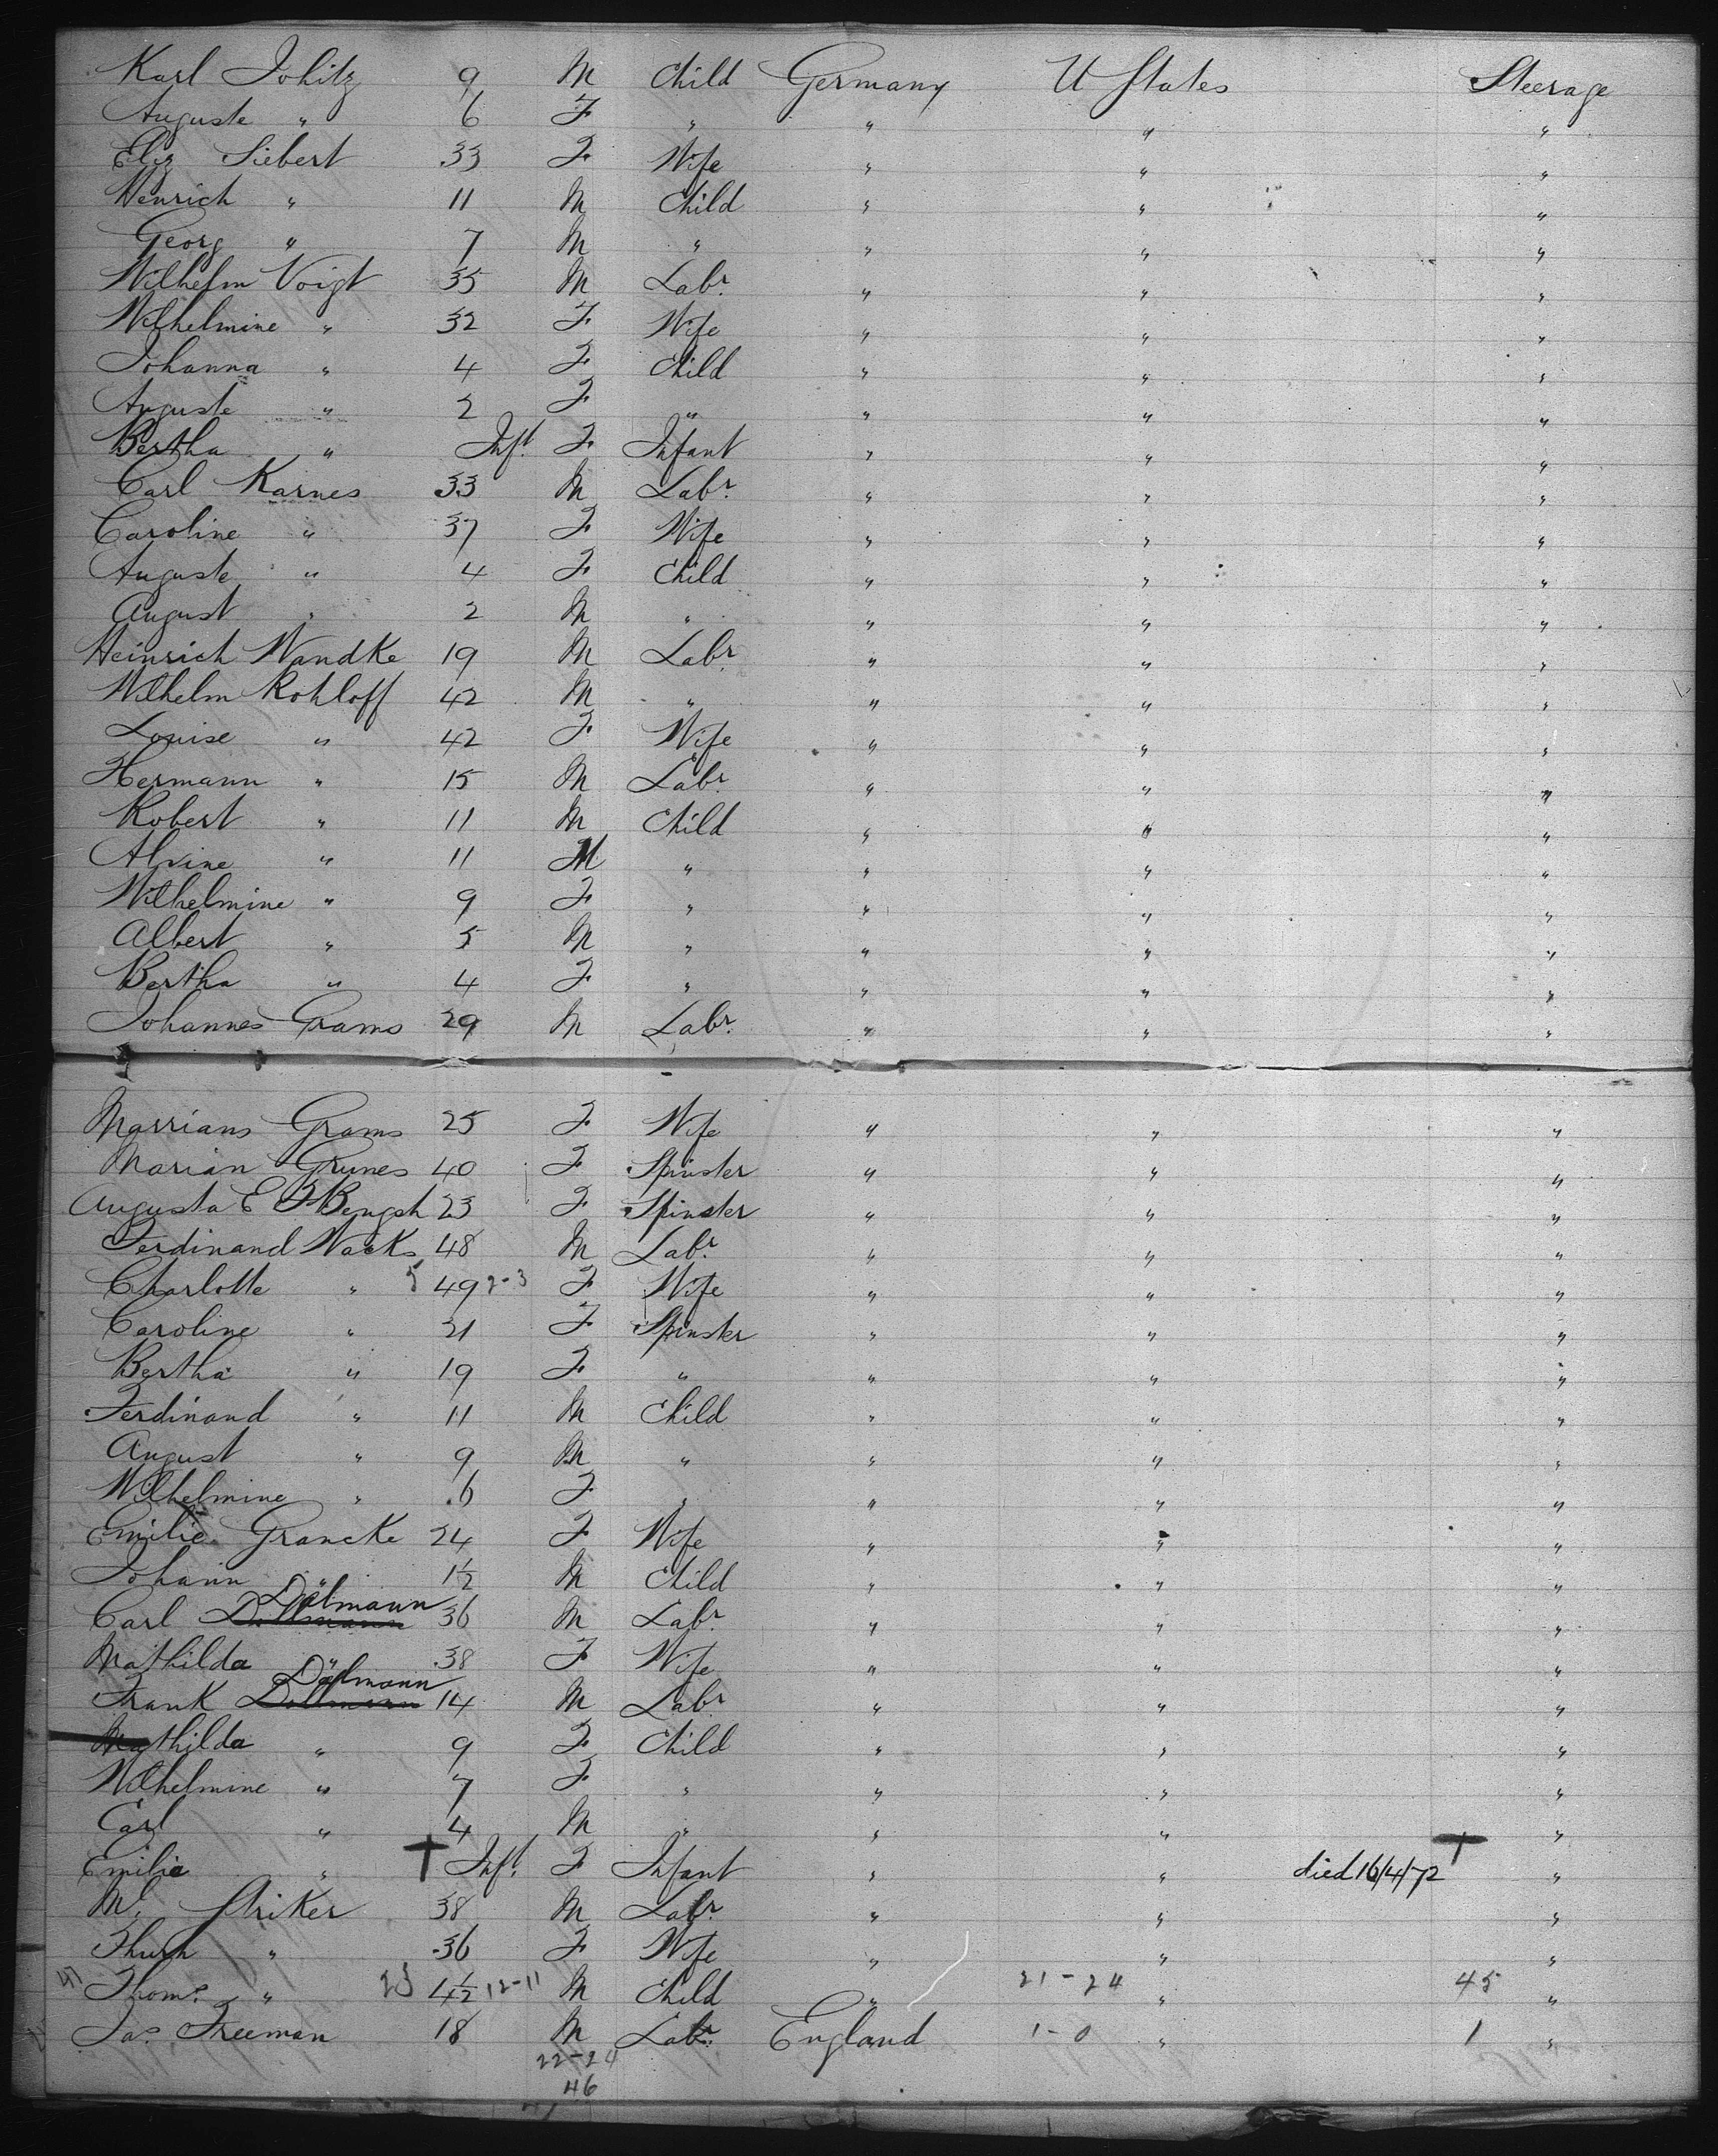 Karl Johitz 9 M Child Germany U States Steerage
Auguste " 6 F " " " "
Eliz Siebert 33 F Wife " " "
Henrich " 11 M Child " " "
Georg " 7 M " " " "
Wilhelm Voigt 35 M Labr. " " "
Wilhelmine " 32 F Wife " " "
Johanna " 4 F Child " " "
Auguste " 2 F " " " "
Bertha " Inft. F Infant " " "
Carl Karnes 33 M Labr. " " "
Caroline " 37 F Wife " " "
Auguste " 4 F Child " " "
August " 2 M " " " "
Heinrich Wandke 19 M Labr. " " "
Wilhelm Rohloff 42 M " " " "
Louise " 42 F Wife " " "
Hermann " 15 M Labr. " " "
Robert " 11 M Child " " "
Alvine " 11 M " " " "
Wilhelmine " 9 F " " " "
Albert " 5 M " " " "
Bertha " 4 F " " " "
Johannes Grams 29 M Labr. " " "
Marrians Grams 25 F Wife " " "
Marian Grunes 40 F Spinster " " "
Augusta E F Bengsh 23 F Spinster " " "
Ferdinand Wacks 48 M Labr. " " "
Charlotte " 5 49 2-3 F Wife " " "
Caroline " 21 F Spinster " " "
Bertha " 19 F " " " "
Ferdinand " 11 M Child " " "
August " 9 M " " " "
Wilhelmine " 6 F " " " "
Emilie Grancke 24 F Wife " " "
Johann " 1½ M Child " " "
Carl Dalmann 36 M Labr. " " "
Mathilda " 38 F Wife " " "
Frank Dalmann 14 M Labr. " " "
Mathilda " 9 F Child " " "
Wilhelmine " 7 F " " " "
Carl " 4 M " " " "
Emilie " † Inft. F Infant " " died 16/4/72 † "
M. Striker 38 M Labr. " " "
" 36 F Wife " " "
Thoms. " 23 4½ 12-11 M Child " 21-24 " 45 "
Jas. Freeman 18 M Labr. England 1-0 " 1 "
22-24
46